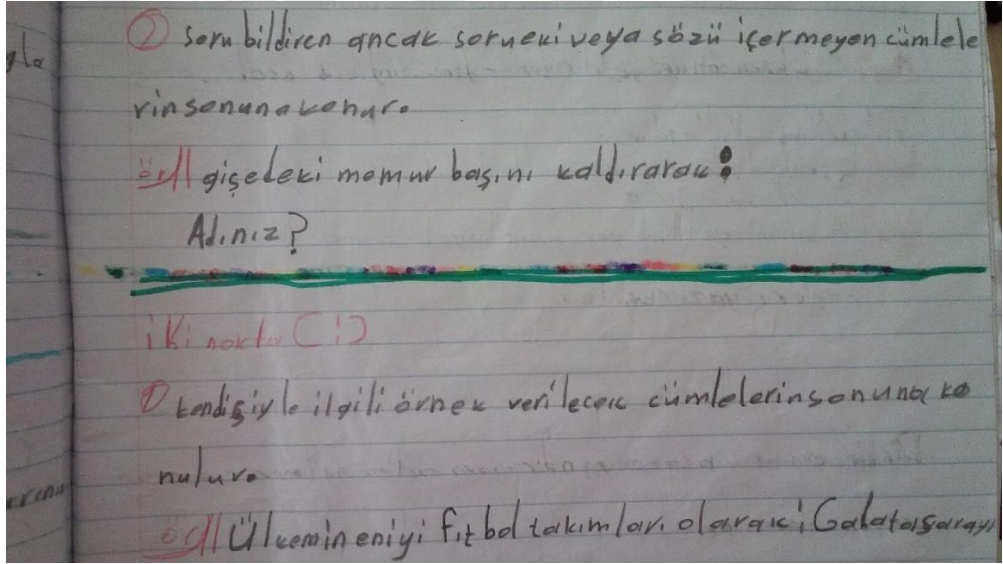 ② Soru bildiren ancak soru eki veya sözü içermeyen cümlele
rin sonuna konur.
ör// gişedeki memur başını kaldırarak:
Adınız?
iki nokta (:)
① kendisiyle ilgili örnek verilecek cümlelerin sonuna ko
nulur.
ör// Ülkemin en iyi fıtbol takımları olarak; Galatasaray,